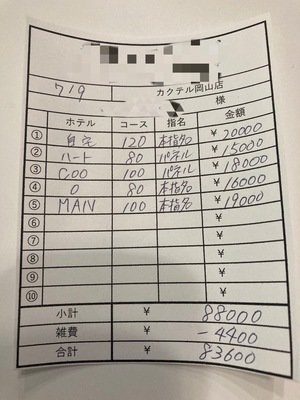 719
カクテル岡山店
様
ホテル コース 指名 金額
① 自宅 120 本指名 ¥20000
② ハート 80 パネル ¥15000
③ GOO 100 パネル ¥18000
④ O 80 本指名 ¥16000
⑤ MAIN 100 本指名 ¥19000
⑥ ¥
⑦ ¥
⑧ ¥
⑨ ¥
⑩ ¥
小計 ¥ 88000
雑費 ¥ -4400
合計 ¥ 83600